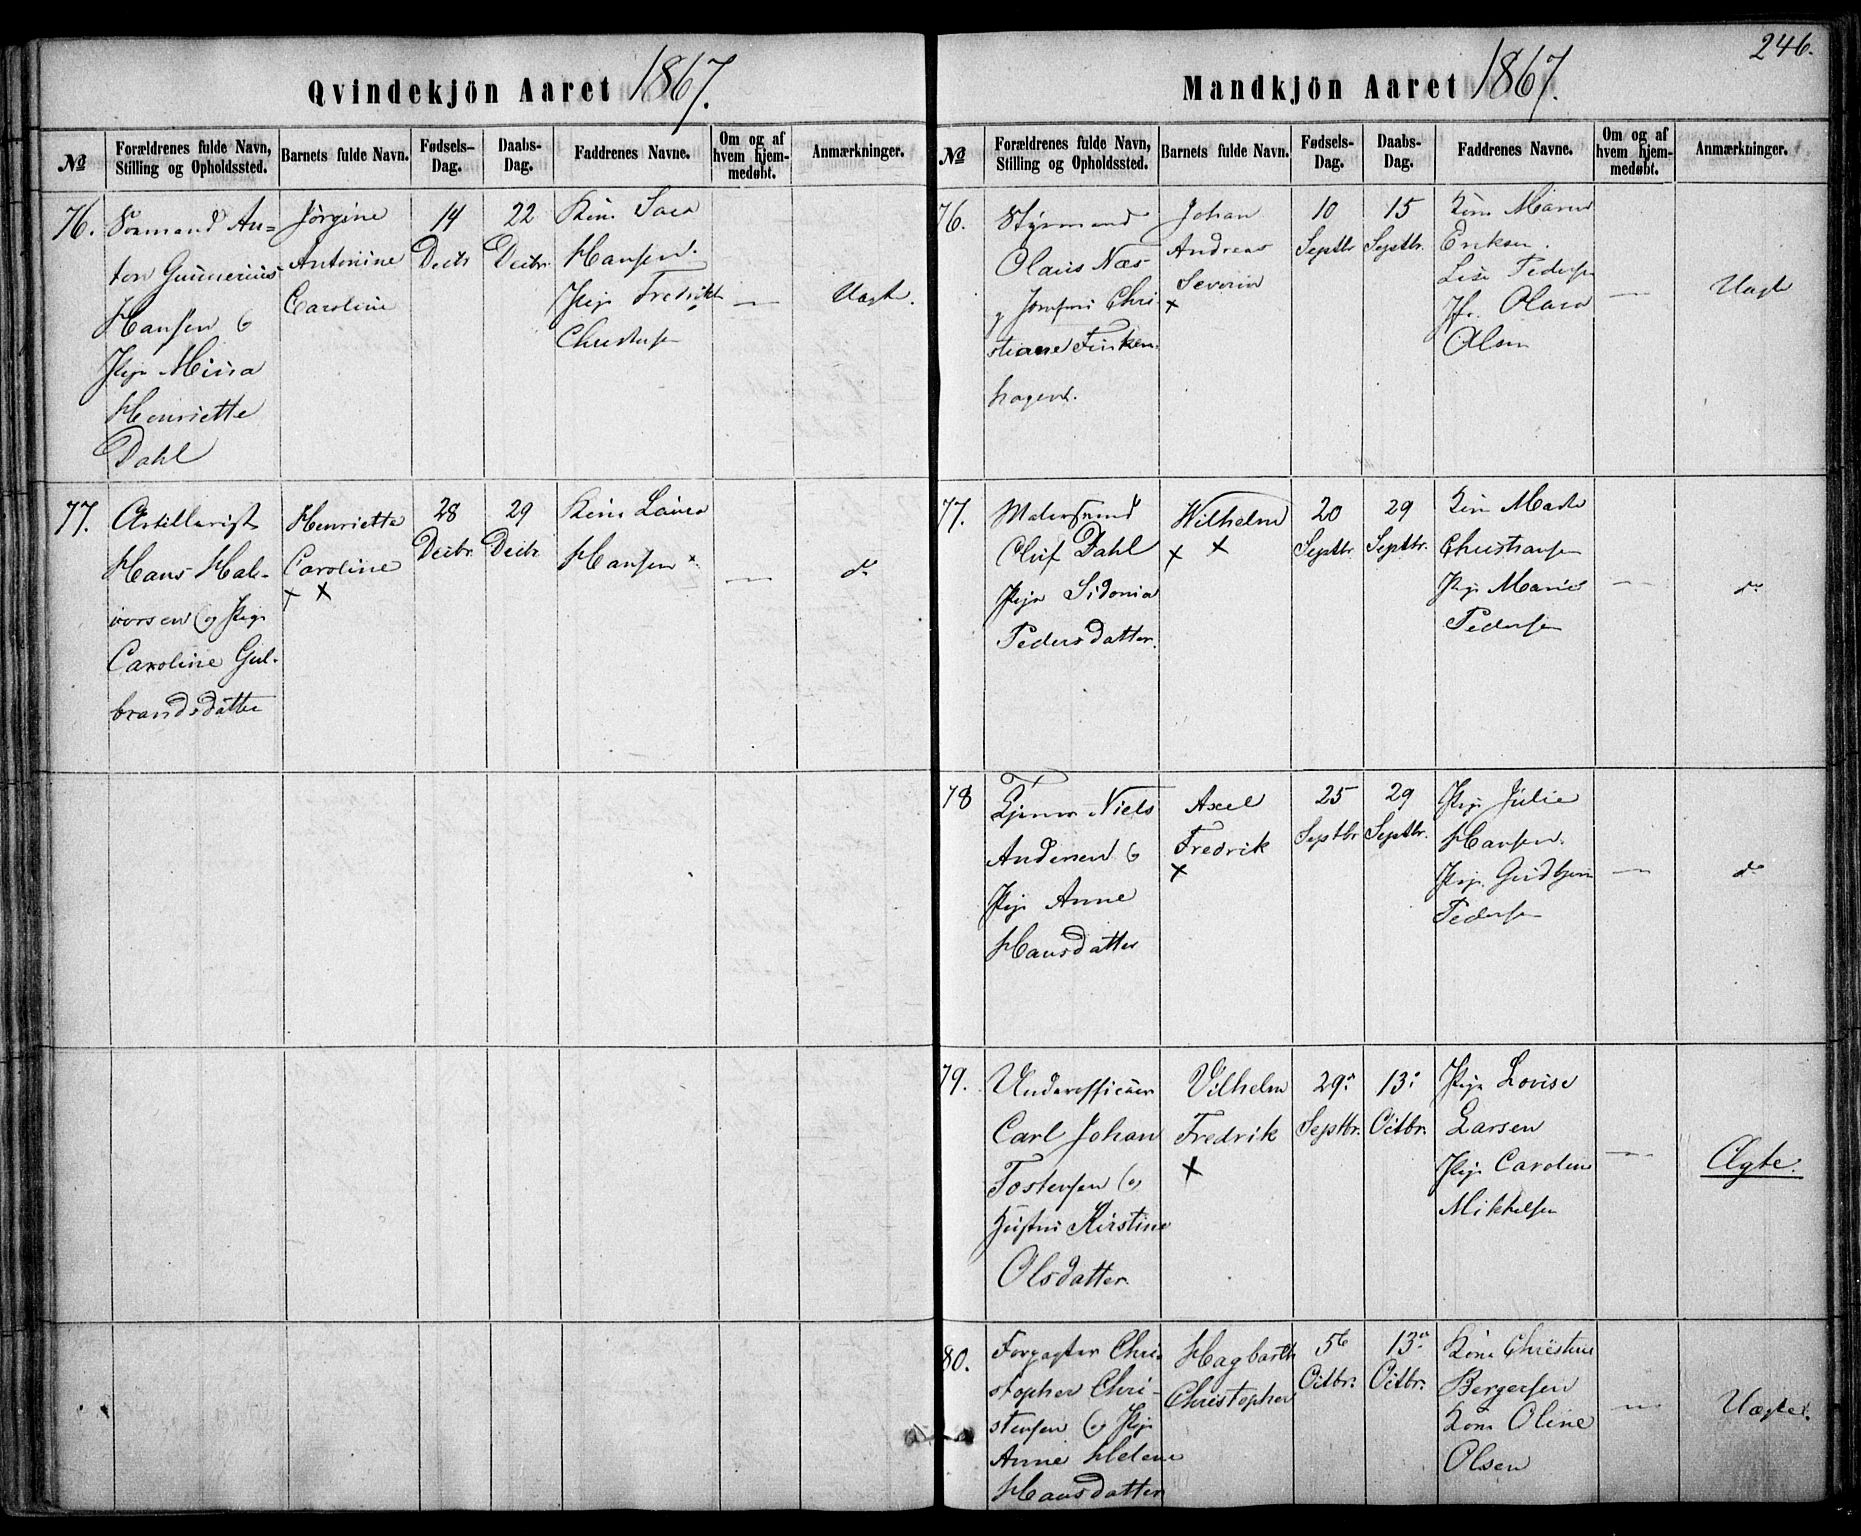 246.
Qvindekjön Aaret 1867.
No
Forældrenes fulde Navn,
Stilling og Opholdssted.
Barnets fulde Navn.
Fødsels-
Dag.
Daabs-
Dag.
Faddrenes Navne.
Om og af
hvem hjem-
medøbt.
Anmærkninger.
76.
Sømand An-
ton Gunnerius
Hansen &
Pige Mina
Henriette
Dahl
Jörgine
Antonine
Caroline
14
Decbr
22
Decbr.
Kone Sara
Hansen.
Pige Fredrikk
Christensen
—
Uægte.
77.
Artillerist
Hans Hal-
vorsen og Pige
Caroline Gul-
brandsdatter
Henriette
Caroline
+ x
28
Decbr.
29
Decbr
Kone Laura
Hansen
—
do
Mandkjön Aaret 1867.
No
Forældrenes fulde Navn,
Stilling og Opholdssted.
Barnets fulde Navn.
Fødsels-
Dag.
Daabs-
Dag.
Faddrenes Navne.
Om og af
hvem hjem-
medøbt.
Anmærkninger.
76.
Styrmand
Olaus Næs
og Jomfru Chri-
stiane Finken-
hagen.
Johan
Andreas
Severin
x
10
Septbr
15
Septbr.
Kone Maren
Eriksen.
Lise Pedersen
Jfr. Olava
Olsen
—
Uægte
77.
Malersvend
Oluf Dahl
Pige Sidonia
Pedersdatter.
Wilhelm
x x
20
Septbr.
29
Septbr.
Kone Marte
Christiansen
Pige Marie
Pedersen
—
do
78
Tjener Niels
Andersen &
Pige Anne
Hansdatter
Axel
Fredrik
x
25
Septbr
29
Septbr.
Pige Julie
Hansen.
Pige Gudbjør
Pedersen
—
do
79.
Underofficier
Carl Johan
Tostensen og
Hustru Kirstine
Olsdatter.
Vilhelm
Fredrik
x
29de
Septbr.
13de
Octbr.
Pige Lovise
Larsen
Pige Caroline
Mikkelsen
—
Ægte.
80.
Forpagter Chri-
stopher Chri-
stensen og Pige
Anne Helene
Hansdatter
Hagbarth
Christopher
5te
Octbr.
13de
Octbr.
Kone Christine
Bergersen
Kone Oline
Olsen
—
Uægte.